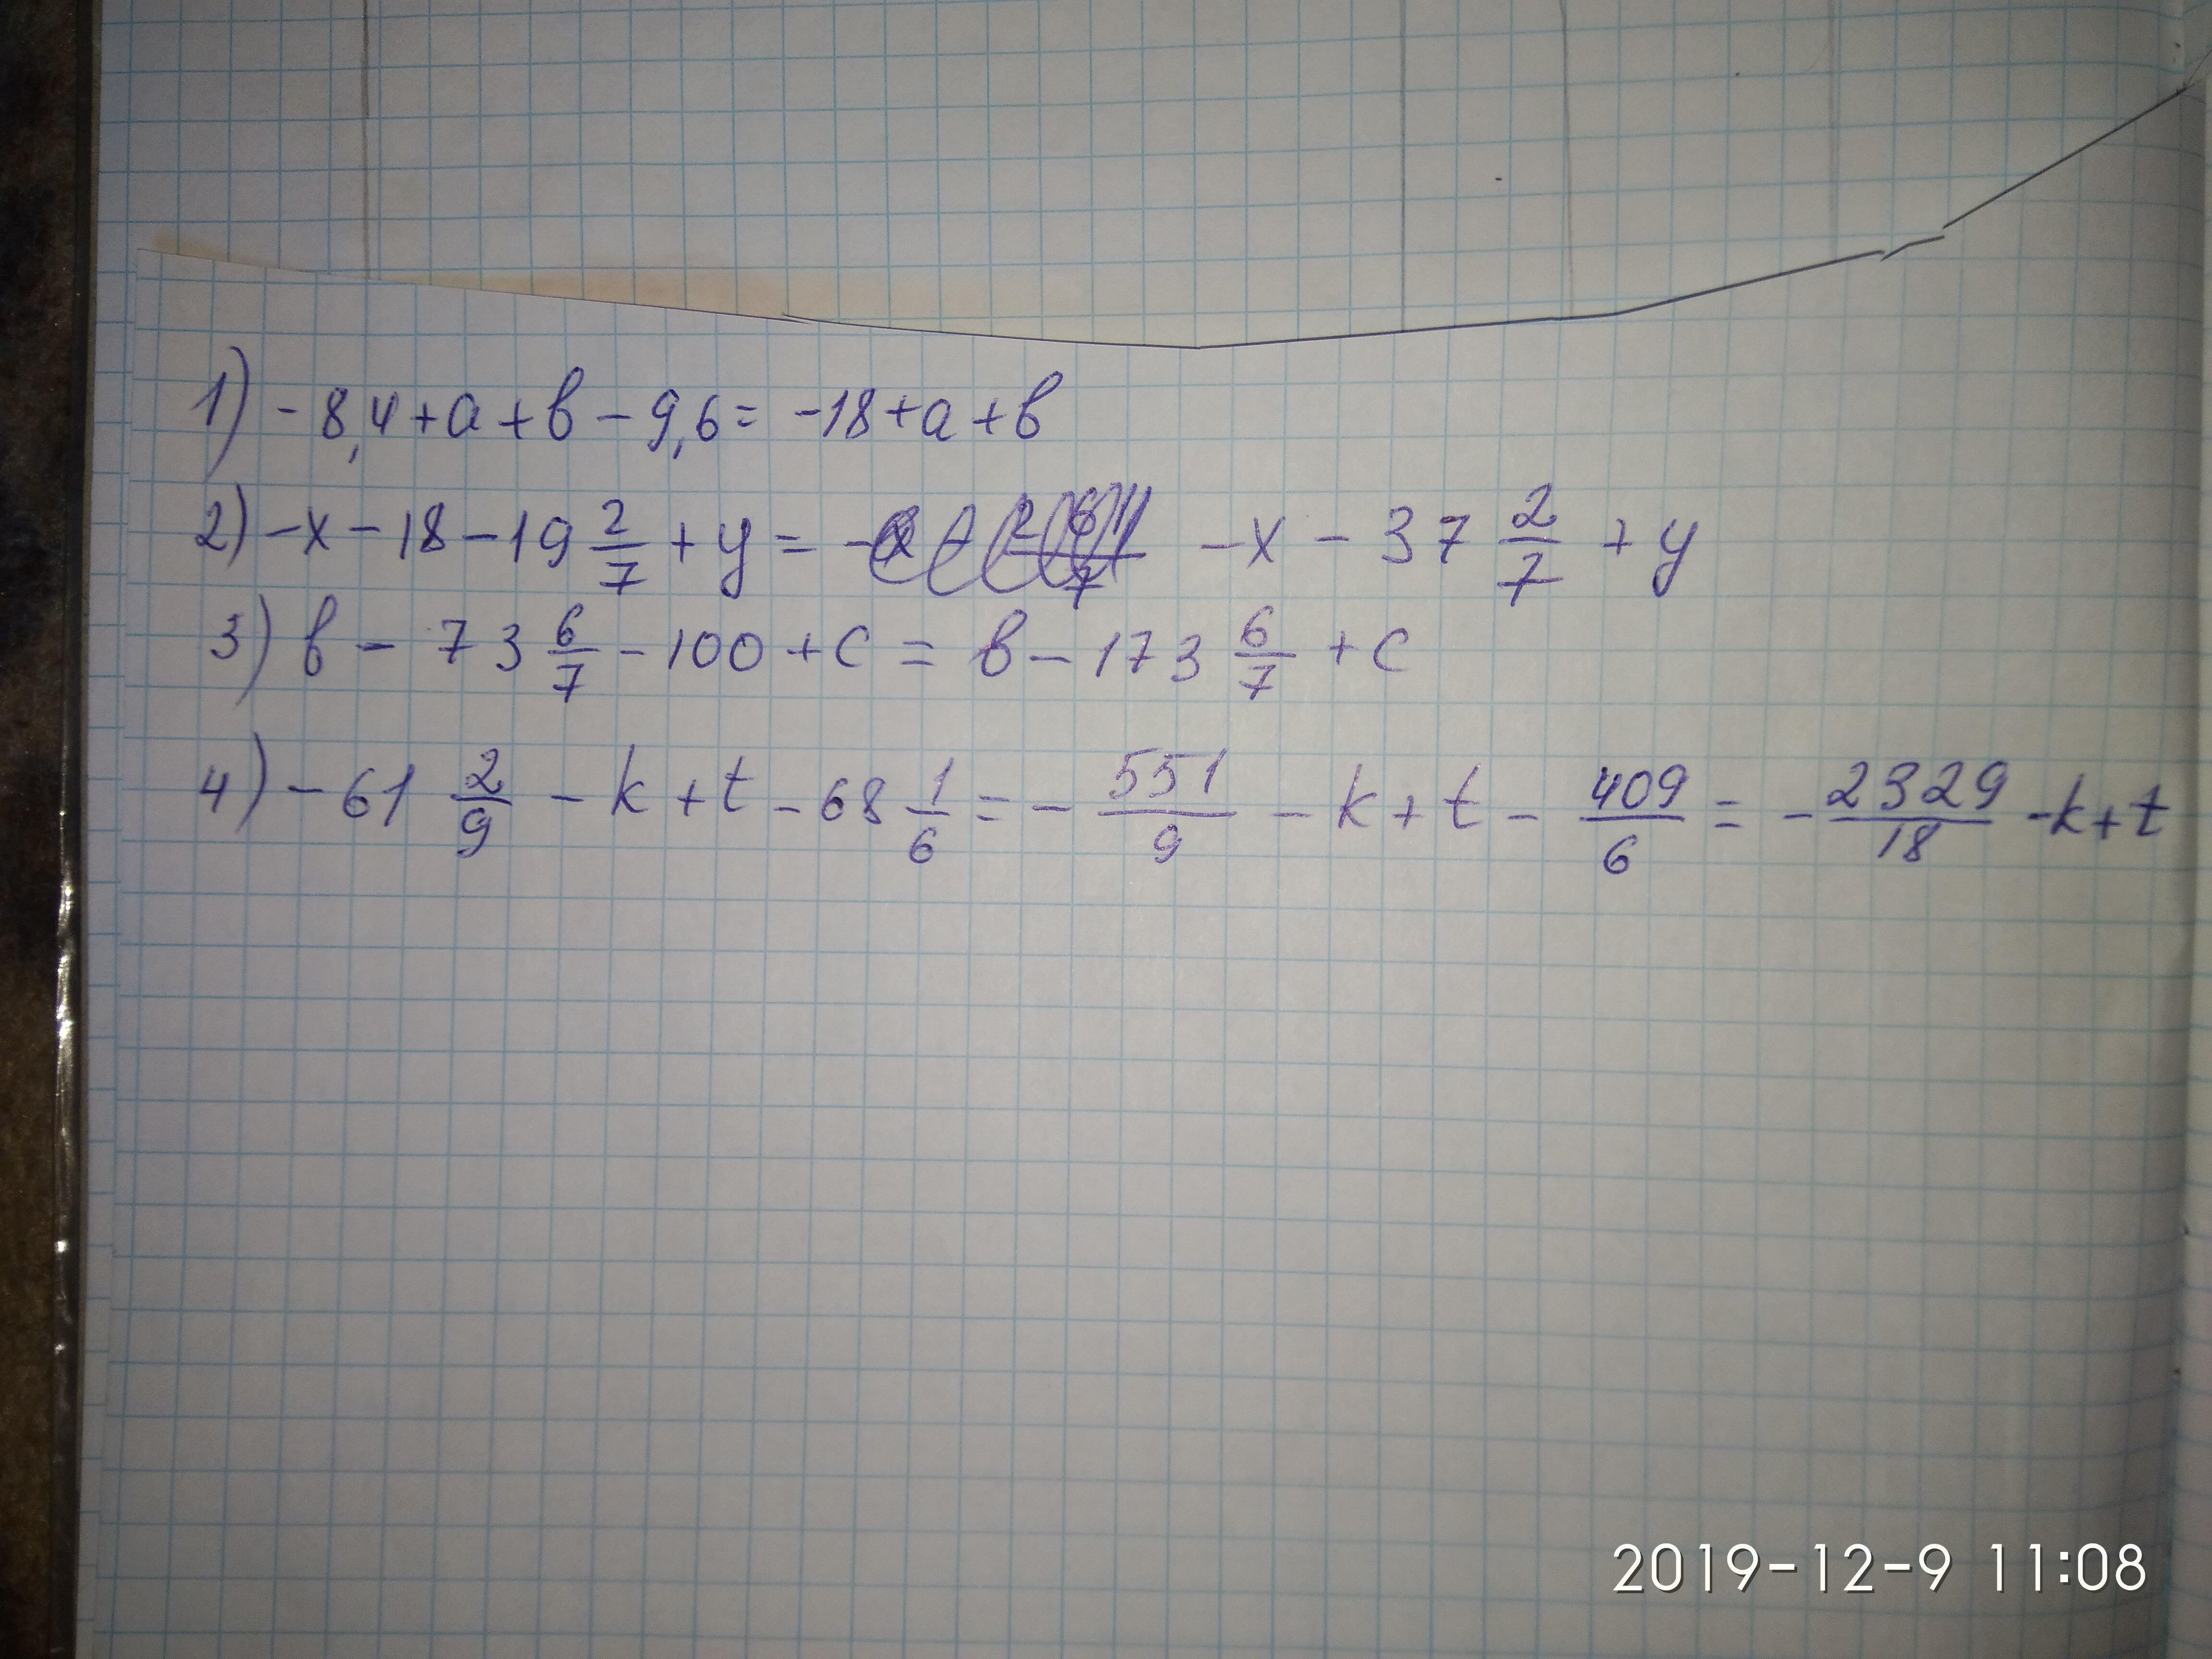 1) -8,4+a+b-9,6= -18+a+b
2) -x-18-19 2/7 +y= -x-37 2/7 +y
3) b-73 6/7 -100+c=b-173 6/7 +c
4) -61 2/9 -k+t-68 1/6 =- 551/9 -k+t- 409/6 =- 2329/18 -k+t
2019-12-9 11:08